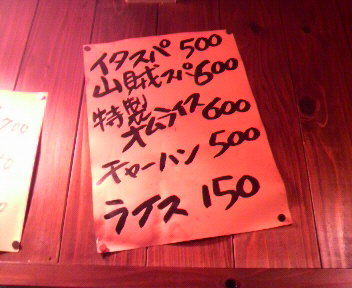 イタスパ 500
山賊スパ 600
特製
オムライス 600
チャーハン 500
ライス 150